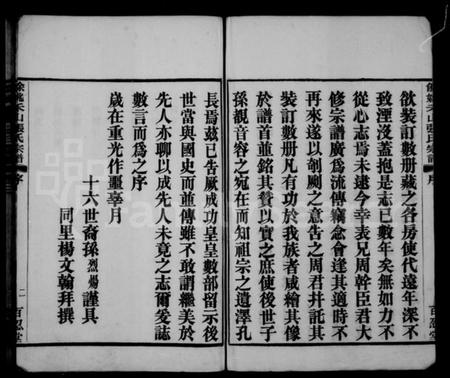 餘姚朱山張氏宗譜
序
欲裝訂數册藏之各房使代遠年深不
致湮沒蓋抱是志已數年矣無如力不
從心志焉未逮今幸表兄周幹臣君大
修宗譜廣為流傳竊念會逢其適時不
再來遂以剞劂之意告之周君幷託其
裝訂數册凡有功於我族者咸繪其像
於譜首並銘其贊以實之庶使後世子
孫觀音容之宛在而知祖宗之遺澤孔
長焉茲已告厥成功皇皇數部留示後
世當與國史而並傳雖不敢謂繼美於
先人亦聊以成先人未竟之志爾爰誌
數言而為之序
歲在重光作噩辜月
十六世裔孫烈煬謹具
同里楊文翰拜撰
餘姚朱山張氏宗譜
序
二
百忍堂
百忍堂